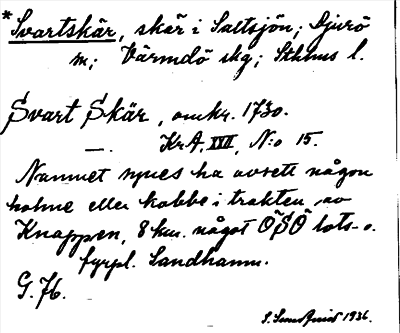 *Svartskär, skär i Saltsjön; Djurö
sn; Värmdö skg; Sthlms l.
Svart Skär, omkr. 1730.
— . KrA, XVII, N:o 15.
Namnet synes ha avsett någon
holme eller kobbe i trakten av
Knappen, 8 km. något ÖSÖ lots- o.
fyrpl. Sandhamn.
G. Hb.
1936.